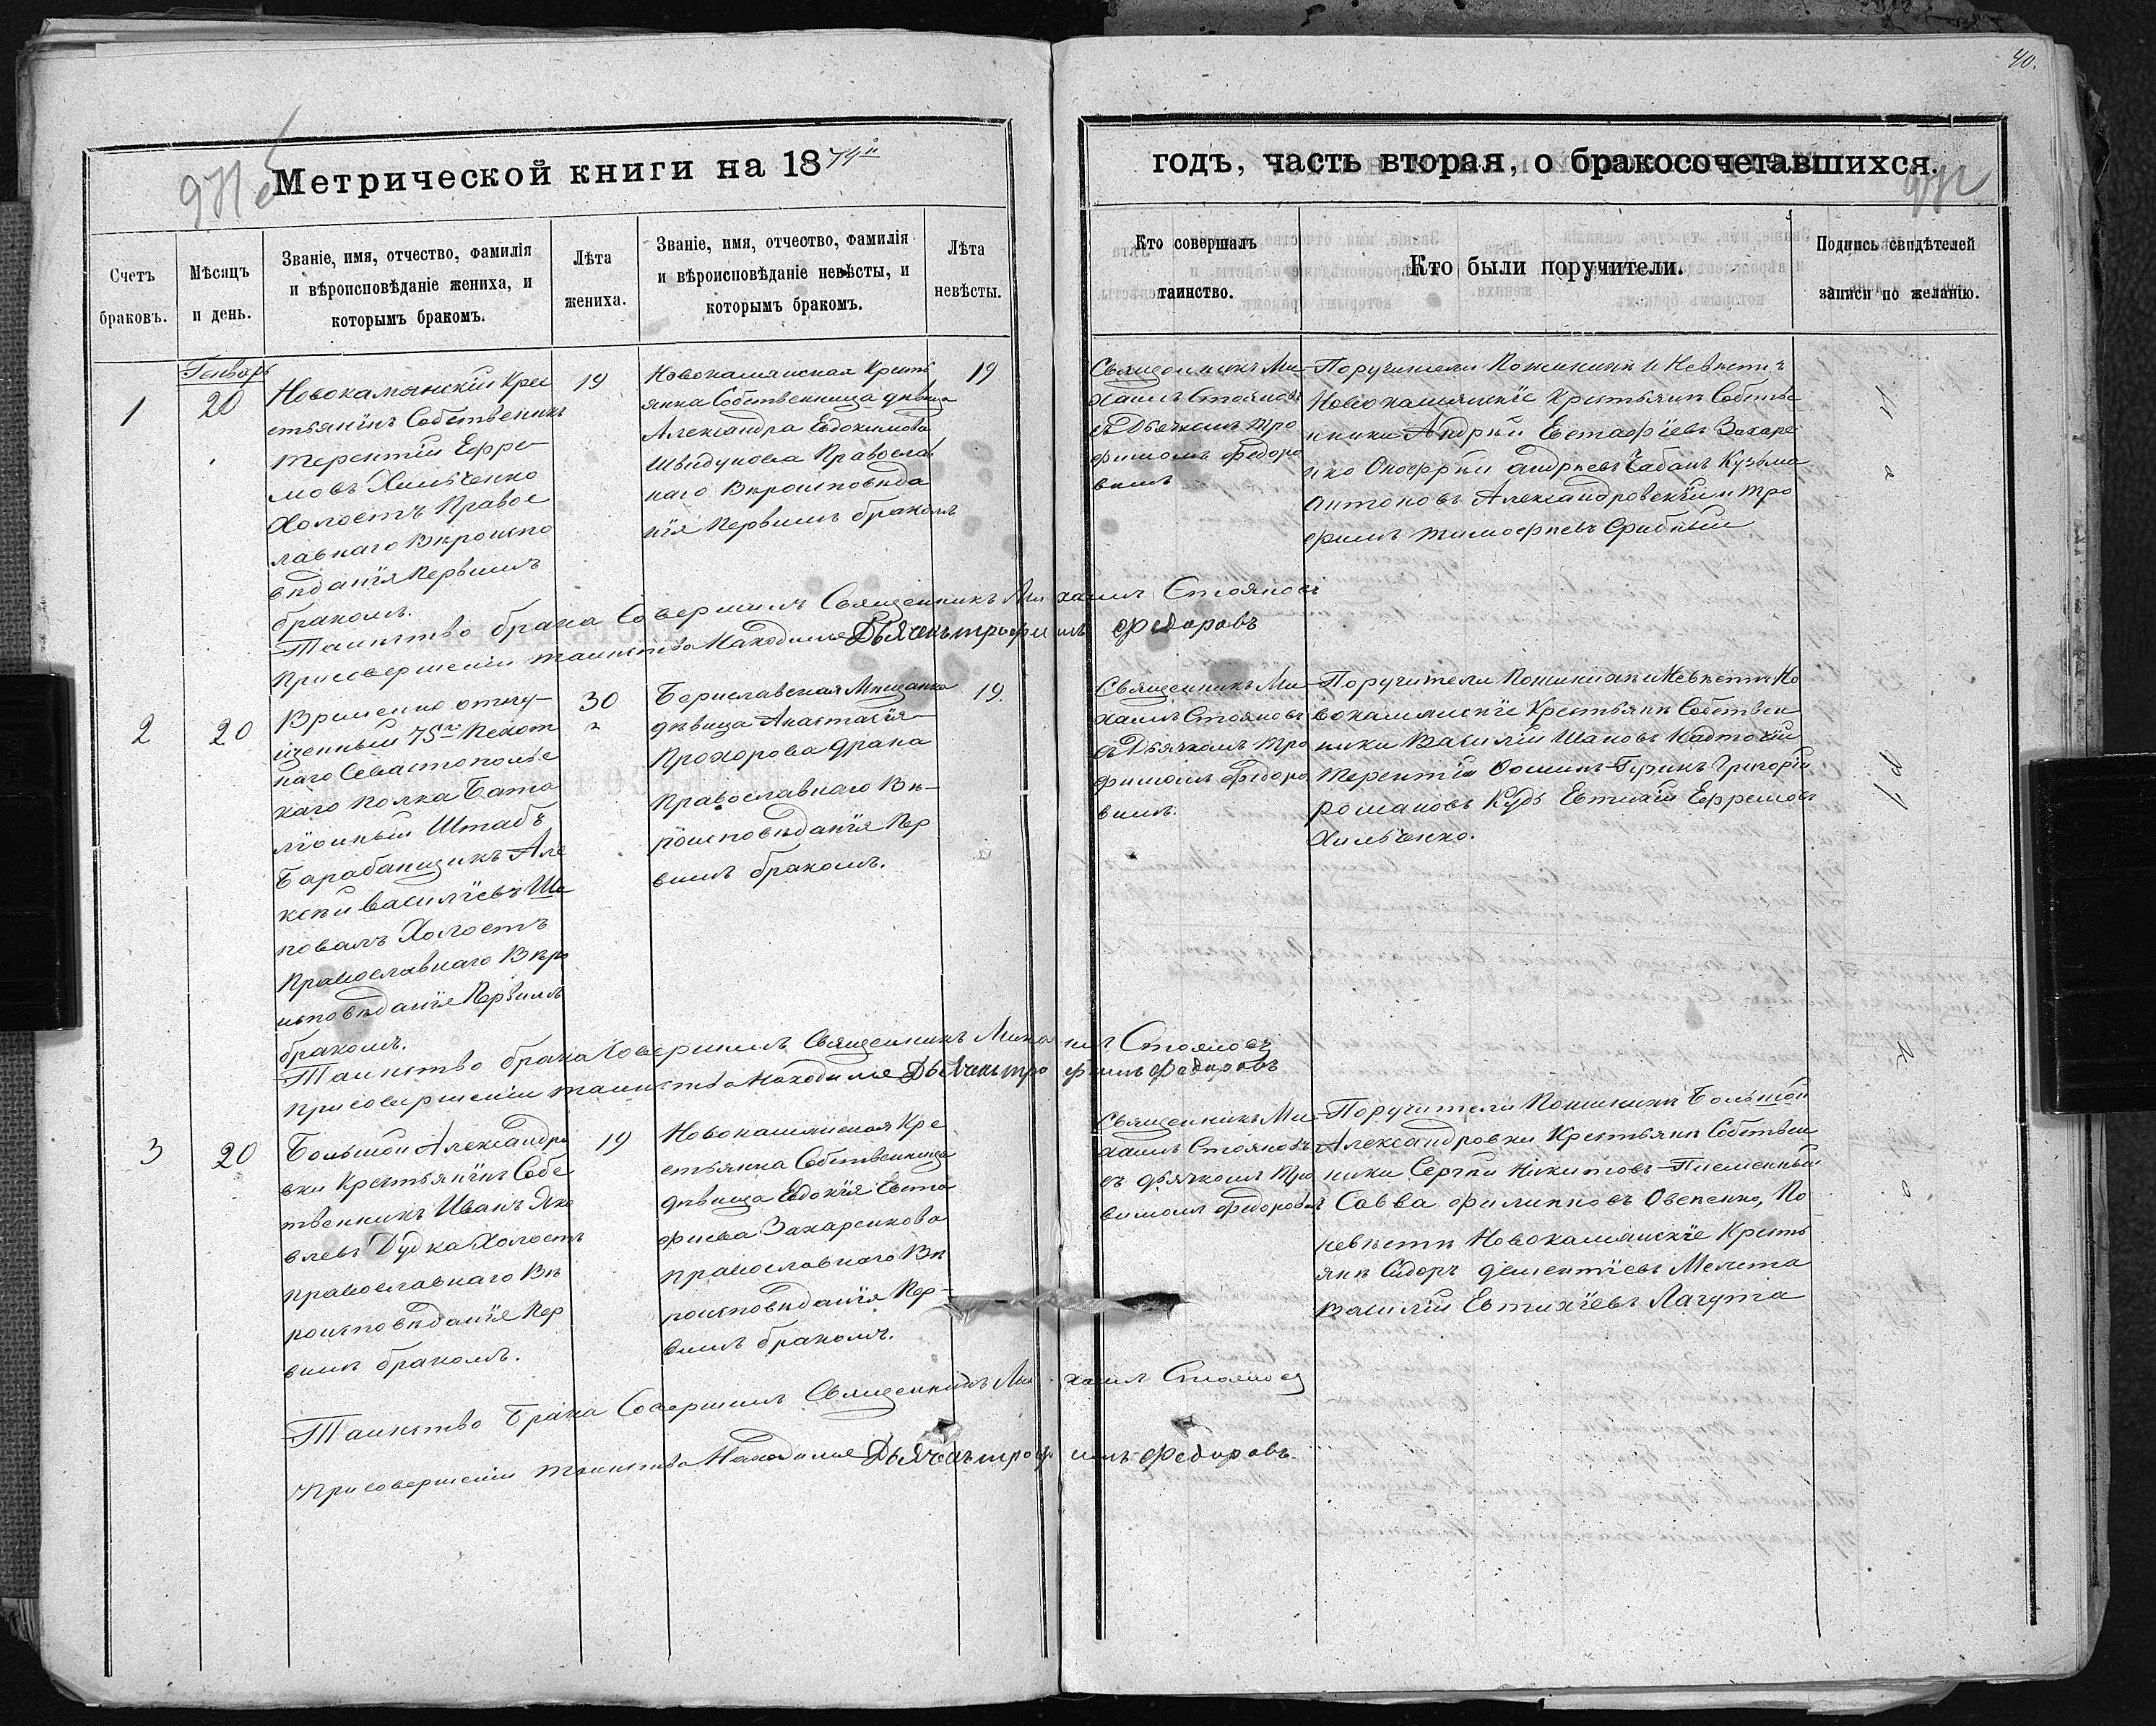 40.
Метрической книги на 1874й
годъ, часть вторая, о бракосочетавшихся.
Счетъ браковъ.
Мѣсяцъ и день.
Званіе, имя, отчество, фамилія и вѣроисповѣданіе жениха, и которымъ бракомъ.
Лѣта жениха.
Званіе, имя, отчество, фамилія и вѣроисповѣданіе невѣсты, и которымъ бракомъ.
Лѣта невѣсты.
Кто совершалъ таинство.
Кто были поручители.
Подпись свидѣтелей записи по желанію.
Генварь
1
20
Новокамянскій Крес
стьянинъ Собственикъ
Терентій Ефре
мовъ Хильченко
Холостъ Правос
лавнаго Вѣроиспо
вѣданія Первымъ
бракомъ.
19
Новокамянская Кресть
янка Собственница дѣвица
Александра Евдокимова
Швидунова Православ
наго Вѣроисповѣда
нія Первымъ бракомъ
19
Священникъ Ми
хаилъ Стояновъ
съ Дьячкомъ Тро
фимомъ Федоро
вымъ
Поручители По женихѣ и Невѣстѣ
Новокамянскіе Крестьяне Собстве
нники Андрей Евстафіевъ Захаре
нко Онофрій Андреевъ Чабанъ Кузьма
Антоновъ Александровскій и Тро
фимъ Тимофеевъ Срибный
Таинство брака Совершилъ Священникъ Михаилъ Стояновъ
При совершеніи таинства Находился Дьячекъ Трофимъ Федоровъ
2
20
Временно отпу-
щенный 75го Пехот
наго Севастопольс
каго полка Бата
ліонный Штабъ
Барабанщикъ Але
ксѣй Василіевъ Ша
повалъ Холостъ
Православнаго Вѣро
исповѣданія Первымъ
бракомъ.
30
Бериславская Мѣщанка
дѣвица Анастасія
Прохорова Драна
Православнаго Вѣ-
роисповѣданія Пер
вымъ бракомъ.
19.
Священникъ Ми
хаилъ Стояновъ
съ Дьячкомъ Тро
фимомъ Федоро
вымъ.
Поручители По женихѣ и Невѣстѣ Но
вокамянскіе Крестьяне Собствен
ники Василій
Терентій Григорій
Романовъ Кудь Евтихій Ефремовъ
Хильченко.
Таинство брака Совершилъ Священникъ Михаилъ Стояновъ
При совершеніи таинства Находился Дьячекъ Трофимъ Федоровъ
3
20
Большой Александро
вки Крестьянинъ Собс
твенникъ Иванъ Яко
влевъ Дудка Холостъ
Православнаго Вѣ
роисповѣданія Пер
вымъ бракомъ.
19
Новокамянская Кре
стьянка Собственница
дѣвица Евдокія Евста
фиева Захаренкова
православнаго Вѣ
роисповѣданія Пер-
вымъ бракомъ.
Священникъ Ми
хаилъ Стояновъ
съ дьячкомъ Тро
фимомъ Федоровымъ
Поручители По женихѣ Большой
Александровки Крестьяне Собствен
ники Сергѣй Никитовъ Писменный
Савва Филипповъ Овсенко, По
невѣстѣ Новокамянскіе Кресть
яне Сидоръ Дементіевъ Мелета
Василій Евтихіевъ Лагута
Таинство Брака Совершилъ Священникъ Михаилъ Стояновъ
При совершеніи таинства Находился Дьячекъ Трофимъ Федоровъ.